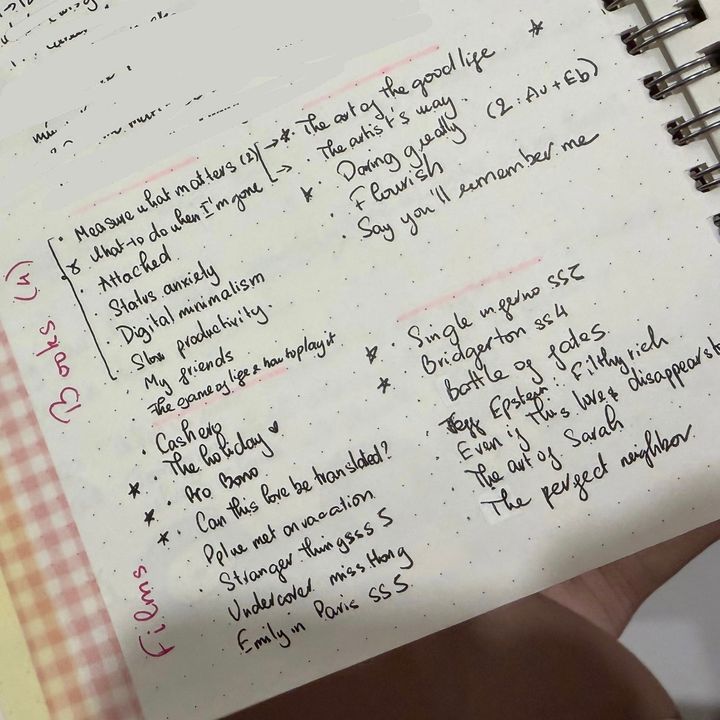 Books (4)
• Measure what matters (2)
• what to do when I'm gone
• Attached
• Status anxiety
• Digital minimalism
• Slow productivity.
• My friends
• The game of life & how to play it
→ * The art of the good life *
→ • The artist's way.
• Daring greatly (2: Av + Eb)
* • Flourish
• Say you'll remember me
Films
• Cashero
• The holiday ♥
* • Pro Bono
* • Can this love be translated?
* • Pplwe met on vacation
• Stranger thingsss 5
• Undercover miss Hong
• Emily in Paris SS5
• Single inferno SS5
* • Bridgerton SS4
* • Battle of fates
• Jeff Epstein: Filthy rich
• Even if this love disappears
• The art of Sarah
• The perfect neighbor